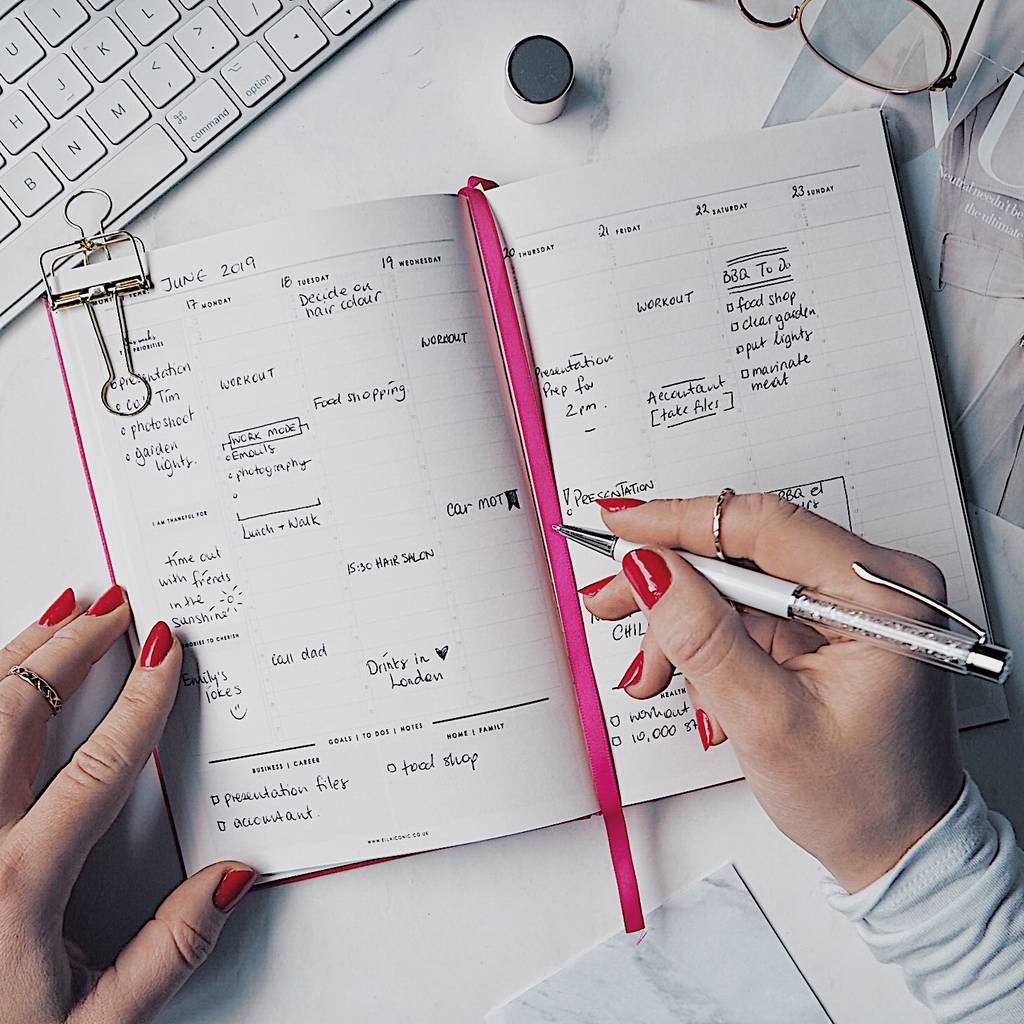 U
I
L
>
.
J
K
<
,
H
N
M
B
⌘
command
⌥
option
JUNE 2019
17 MONDAY
18 TUESDAY
19 WEDNESDAY
PRIORITIES
presentation
Tim
photoshoot
garden
lights.
I AM THANKFUL FOR
time out
with friends
in the
sunshine
TO CHERISH
Emily's
jokes
WORKOUT
WORK MODE
Emails
photography
Lunch + Walk
call dad
Decide on
hair colour
Food shopping
15:30 HAIR SALON
Drinks in
London
WORKOUT
car MOT
GOALS | TO DOS | NOTES
BUSINESS | CAREER
presentation files
accountant.
HOME | FAMILY
food shop
WWW.LILAICONIC.CO.UK
20 THURSDAY
21 FRIDAY
22 SATURDAY
23 SUNDAY
Presentation
Prep for
2pm.
! PRESENTATION
CHIL
WORKOUT
Accountant
[take files]
BBQ To do
food shop
clear garden
put lights
marinate
meat
BBQ
HEALTH
workout
10,000
Neutral needn't be
the ultimate